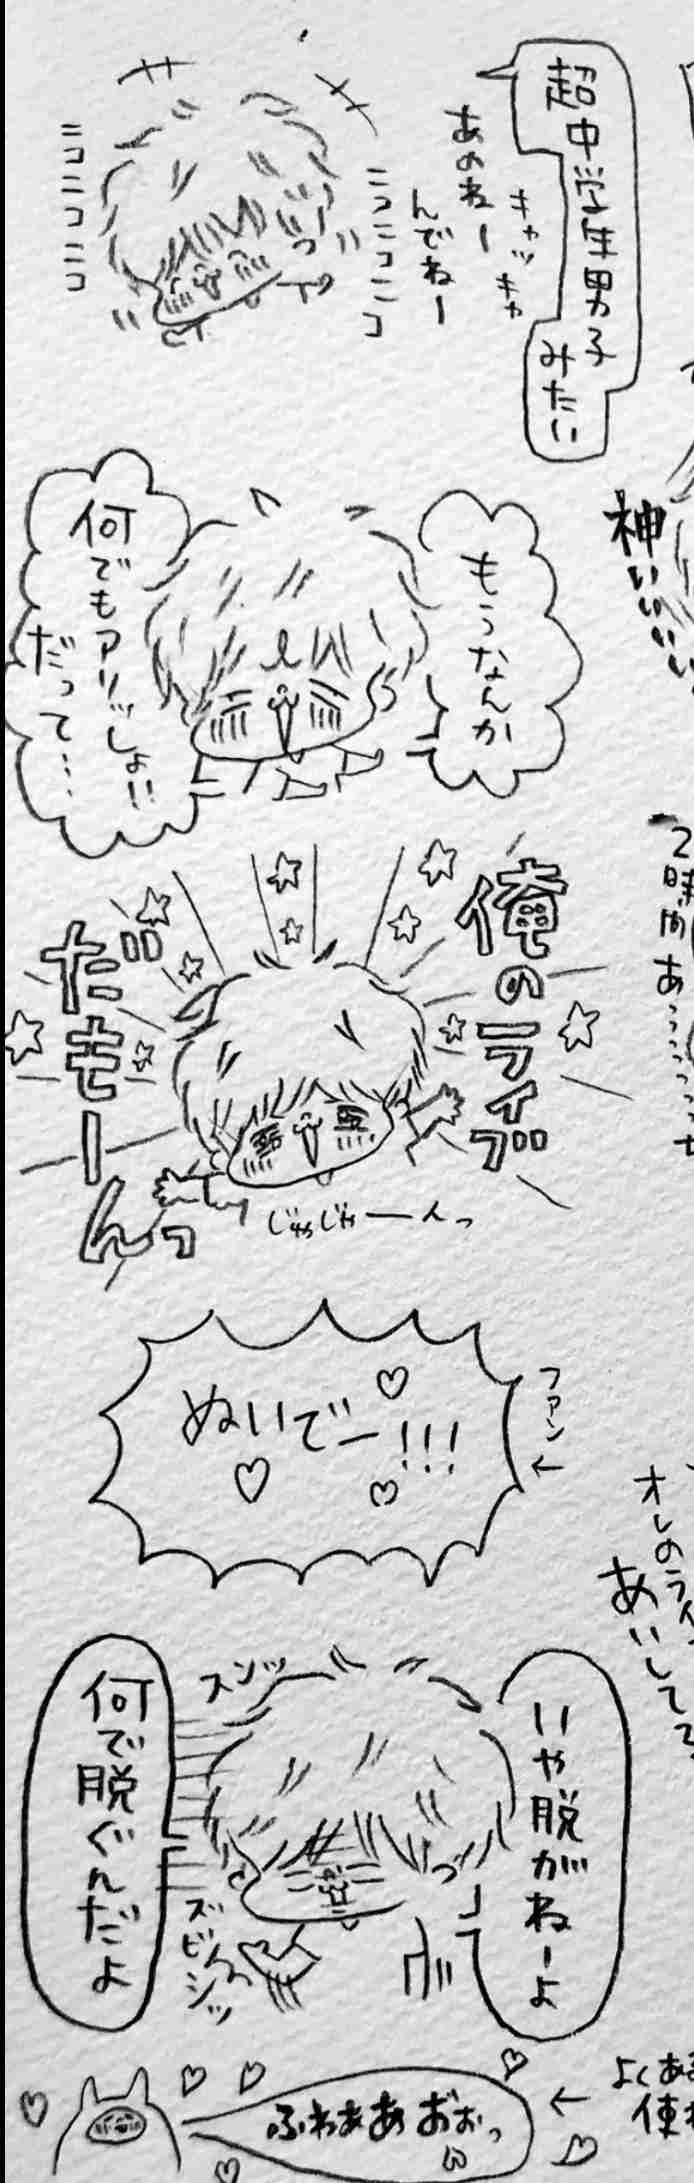 超中学生男子
みたい
キャッキャ
あのねー
んでねー
ニコニコニコ
ニコニコニコ
もうなんか
何でもアリッしょ!!
だって…
神ぃぃぃぃ
俺のライブ
だもーんっ
じゃじゃーんっ
2時間あ
ぬいでー!!!
ファン
←
オレのライ
あいしてる
いや脱がねーよ
スンッ
何で脱ぐんだよ
ズビシッ
ふわぁあおぉっ
←
よくある
使わ